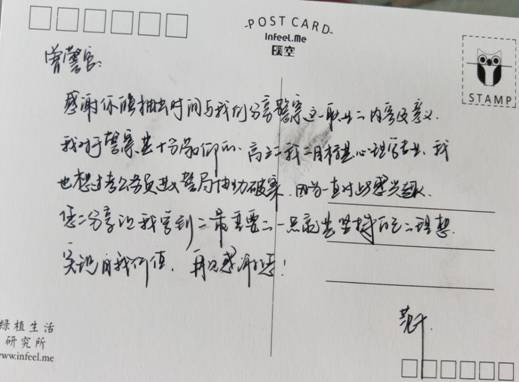 POST CARD
Infeel.Me
STAMP
曾警官:
感谢你能抽出时间与我们分享警察这一职业的内容及意义.
我对于警察是十分敬仰的. 高三我目标是心理学专业, 我
也想过考公务员进入警局协助破案, 因为一直对此感兴趣.
您的分享让我学到的最重要的一点就是坚持自己的理想.
实现自我价值. 再次感谢您!
绿植生活
研究所
www.infeel.me